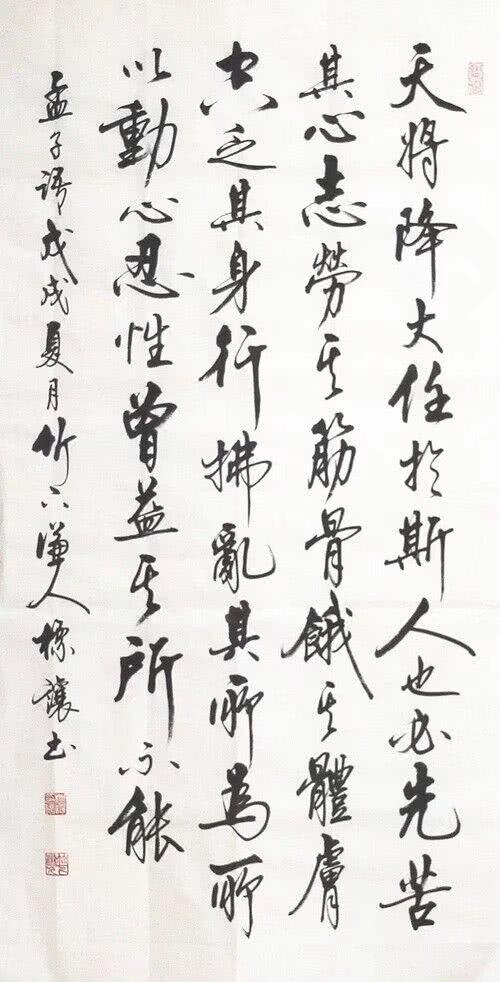 天将降大任於斯人也必先苦
其心志勞其筋骨餓其體膚
空乏其身行拂亂其所為所
以動心忍性曾益其所不能
孟子语戊戌夏月竹下谦人书